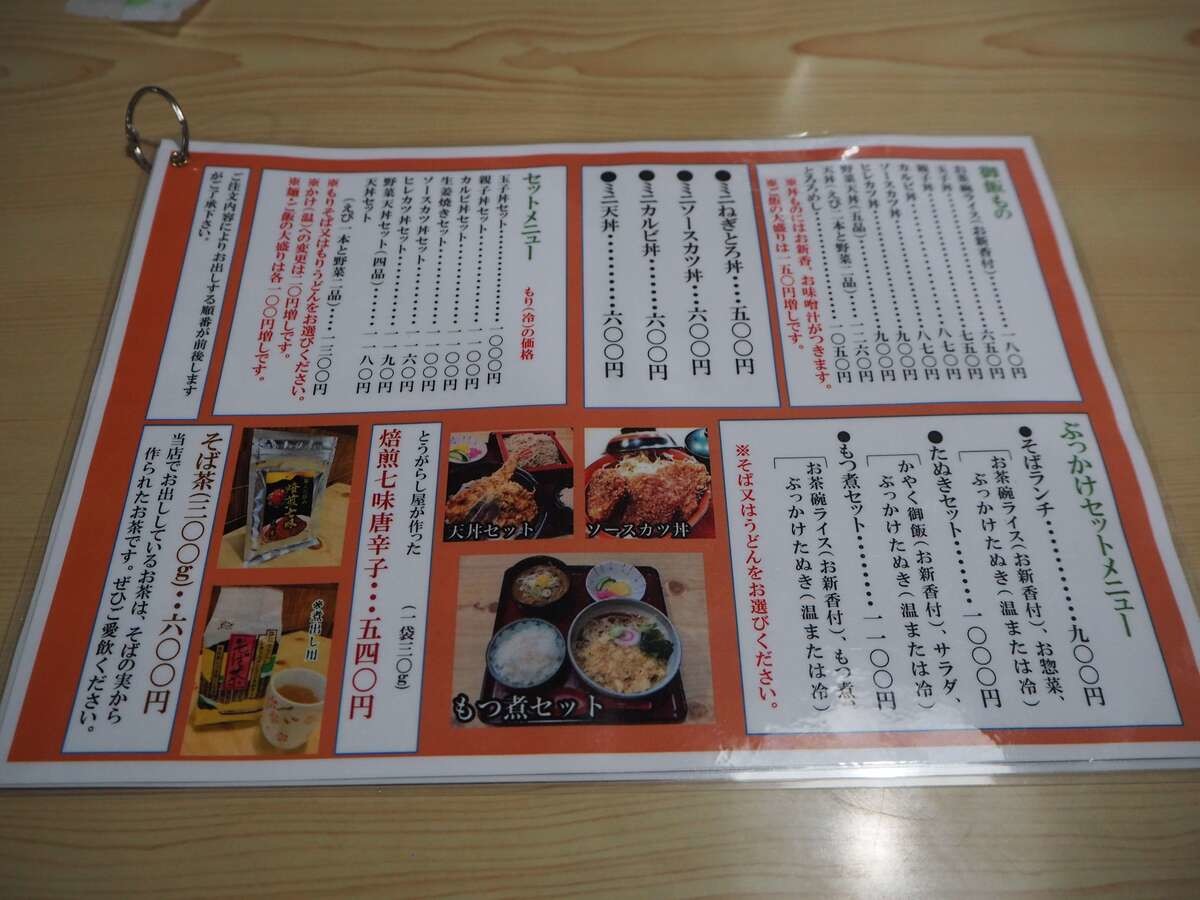 御飯もの
お茶碗ライス(お新香付)・・・・・一八〇円
玉子丼・・・・・・・・・・六五〇円
親子丼・・・・・・・・・・七五〇円
カルビ丼・・・・・・・・・八七〇円
ソースカツ丼・・・・・・・八七〇円
ヒレカツ丼・・・・・・・・九〇〇円
野菜天丼(五品)・・・・・・九〇〇円
天丼(えび二本と野菜二品)・・一二六〇円
とろろめし・・・・・・・・一〇五〇円
※丼ものにはお新香、お味噌汁がつきます。
※ご飯の大盛りは一五〇円増しです。
●ミニねぎとろ丼・・・五〇〇円
●ミニソースカツ丼・・・六〇〇円
●ミニカルビ丼・・・・六〇〇円
●ミニ天丼・・・・・・六〇〇円
セットメニュー もり(冷)の価格
玉子丼セット・・・・・・・一〇〇〇円
親子丼セット・・・・・・・一一〇〇円
カルビ丼セット・・・・・・一一〇〇円
生姜焼きセット・・・・・・一一〇〇円
ソースカツ丼セット・・・・一一〇〇円
ヒレカツ丼セット・・・・・一一六〇円
野菜天丼セット(四品)・・・一一九〇円
天丼セット・・・・・・・・一一八〇円
(えび一本と野菜二品)・・・一三〇〇円
※もりそば又はもりうどんをお選びください。
※かけ(温)への変更は二〇円増しです。
※麺・ご飯の大盛りは各一〇〇円増しです。
ご注文内容によりお出しする順番が前後します
がご了承下さい。
ぶっかけセットメニュー
●そばランチ・・・・・・・・・九〇〇円
お茶碗ライス(お新香付)、お惣菜、
ぶっかけたぬき(温または冷)
●たぬきセット・・・・・・一〇〇〇円
かやく御飯(お新香付)、サラダ、
ぶっかけたぬき(温または冷)
●もつ煮セット・・・・・・一一〇〇円
お茶碗ライス(お新香付)、もつ煮、
ぶっかけたぬき(温または冷)
※そば又はうどんをお選びください。
ソースカツ丼
天丼セット
もつ煮セット
とうがらし屋が作った (一袋三〇g)
焙煎七味唐辛子・・・五四〇円
煮出し用
そば茶(三〇〇g)・・六〇〇円
当店でお出ししているお茶は、そばの実から
作られたお茶です。ぜひご愛飲ください。